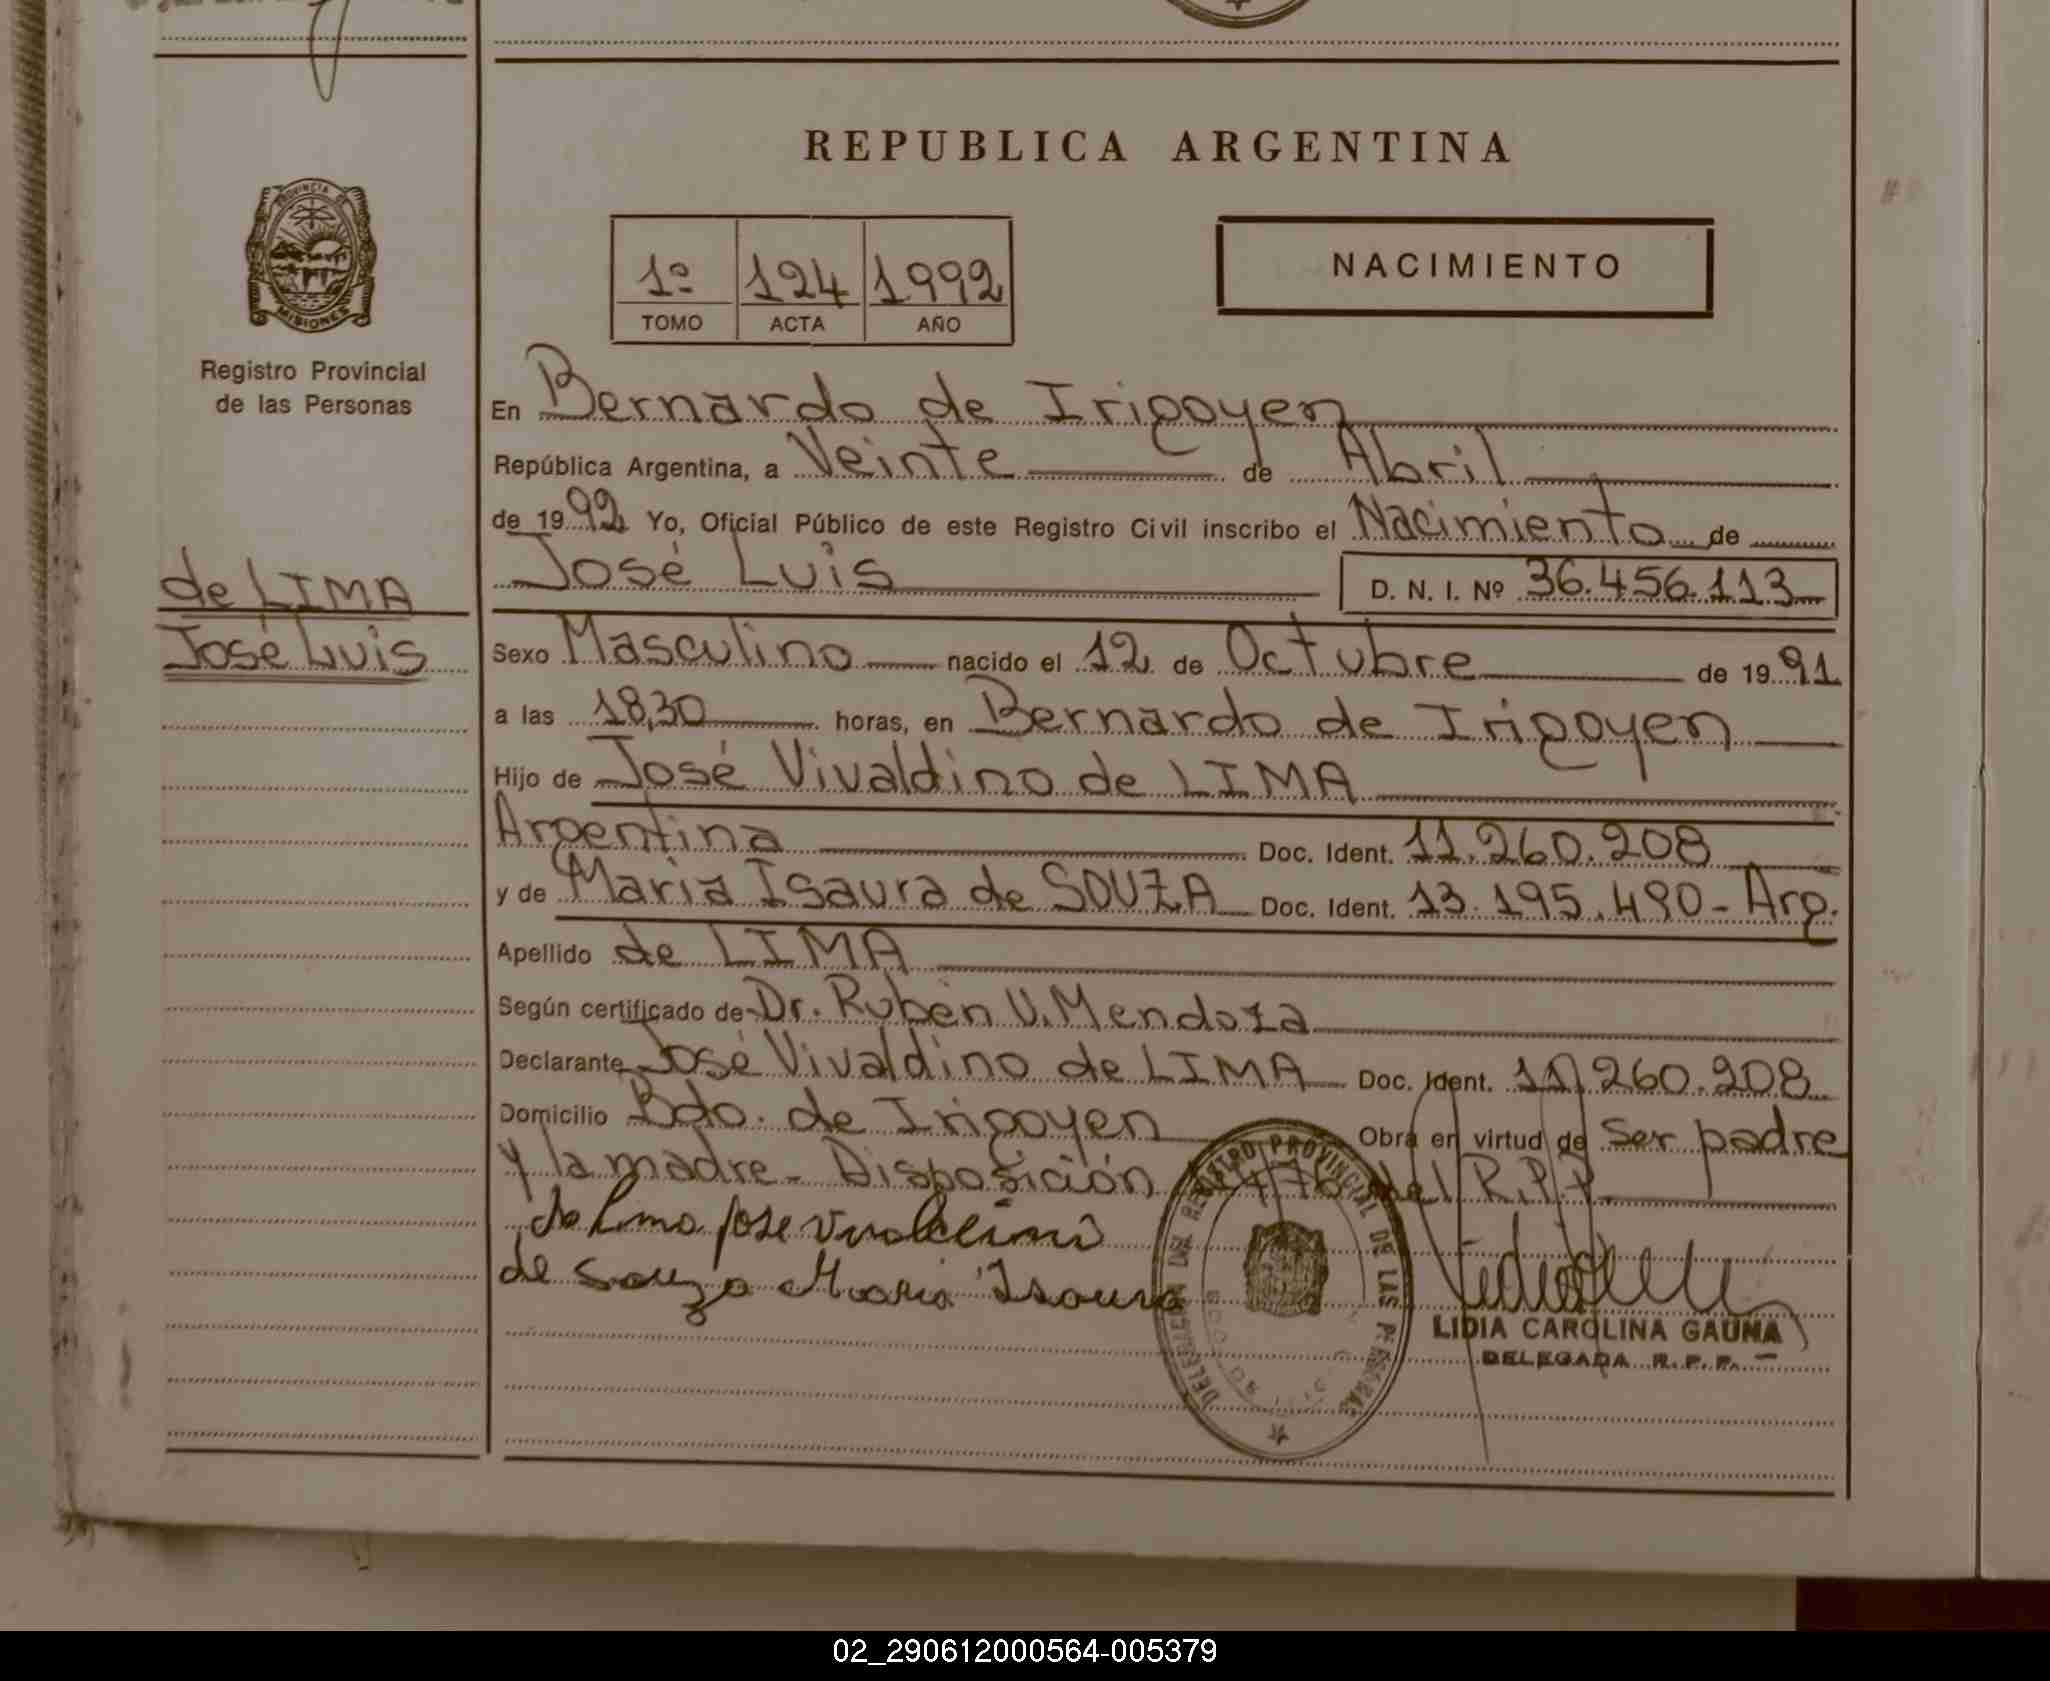 REPUBLICA ARGENTINA
PROVINCIA DE
MISIONES
Registro Provincial
de las Personas
de LIMA
José Luis
1º 124 1992
TOMO ACTA AÑO
NACIMIENTO
En Bernardo de Irigoyen
República Argentina, a Veinte de Abril
de 1992 Yo, Oficial Público de este Registro Civil inscribo el Nacimiento de
José Luis D. N. I. Nº 36.456.113
Sexo Masculino nacido el 12 de Octubre de 1991
a las 18,30 horas, en Bernardo de Irigoyen
Hijo de José Vivaldino de LIMA
Argentina Doc. Ident. 11.260.208
y de Maria Isaura de SOUZA Doc. Ident. 13.195.490 - Arg.
Apellido de LIMA
Según certificado de Dr. Rubén V. Mendoza
Declarante José Vivaldino de LIMA Doc. Ident. 11.260.208
Domicilio Bdo. de Irigoyen Obra en virtud de ser padre
y la madre - Disposición del R.P.P.
de Lima jose
de Souza Maria Isaura
DELEGACION DEL REGISTRO PROVINCIAL DE LAS PERSONAS
LIDIA CAROLINA GAUNA
DELEGADA R. P. P.
02_290612000564-005379